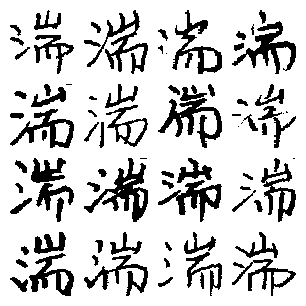 湍湍湍湍
湍湍湍湍
湍湍湍湍
湍湍湍湍